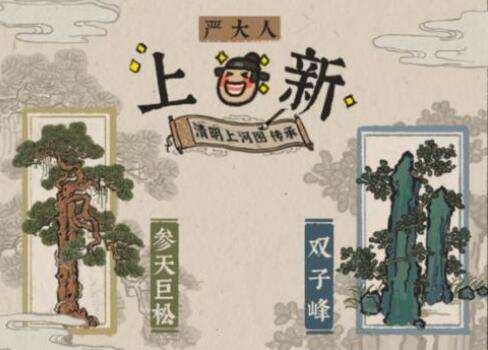 严大人
上新
清明上河图传承
参天巨松
双子峰